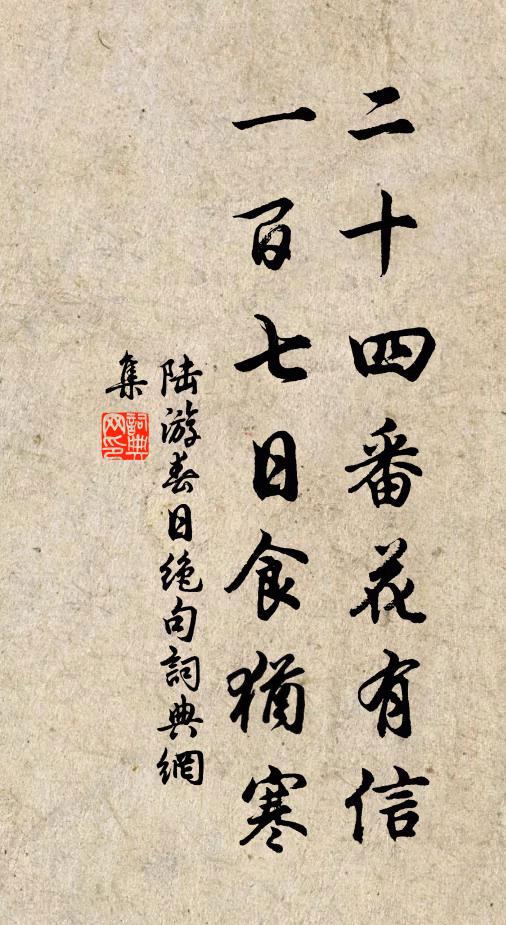 二十四番花有信
一百七日食猶寒
陸游春日绝句詞典網
集
詞典
网印